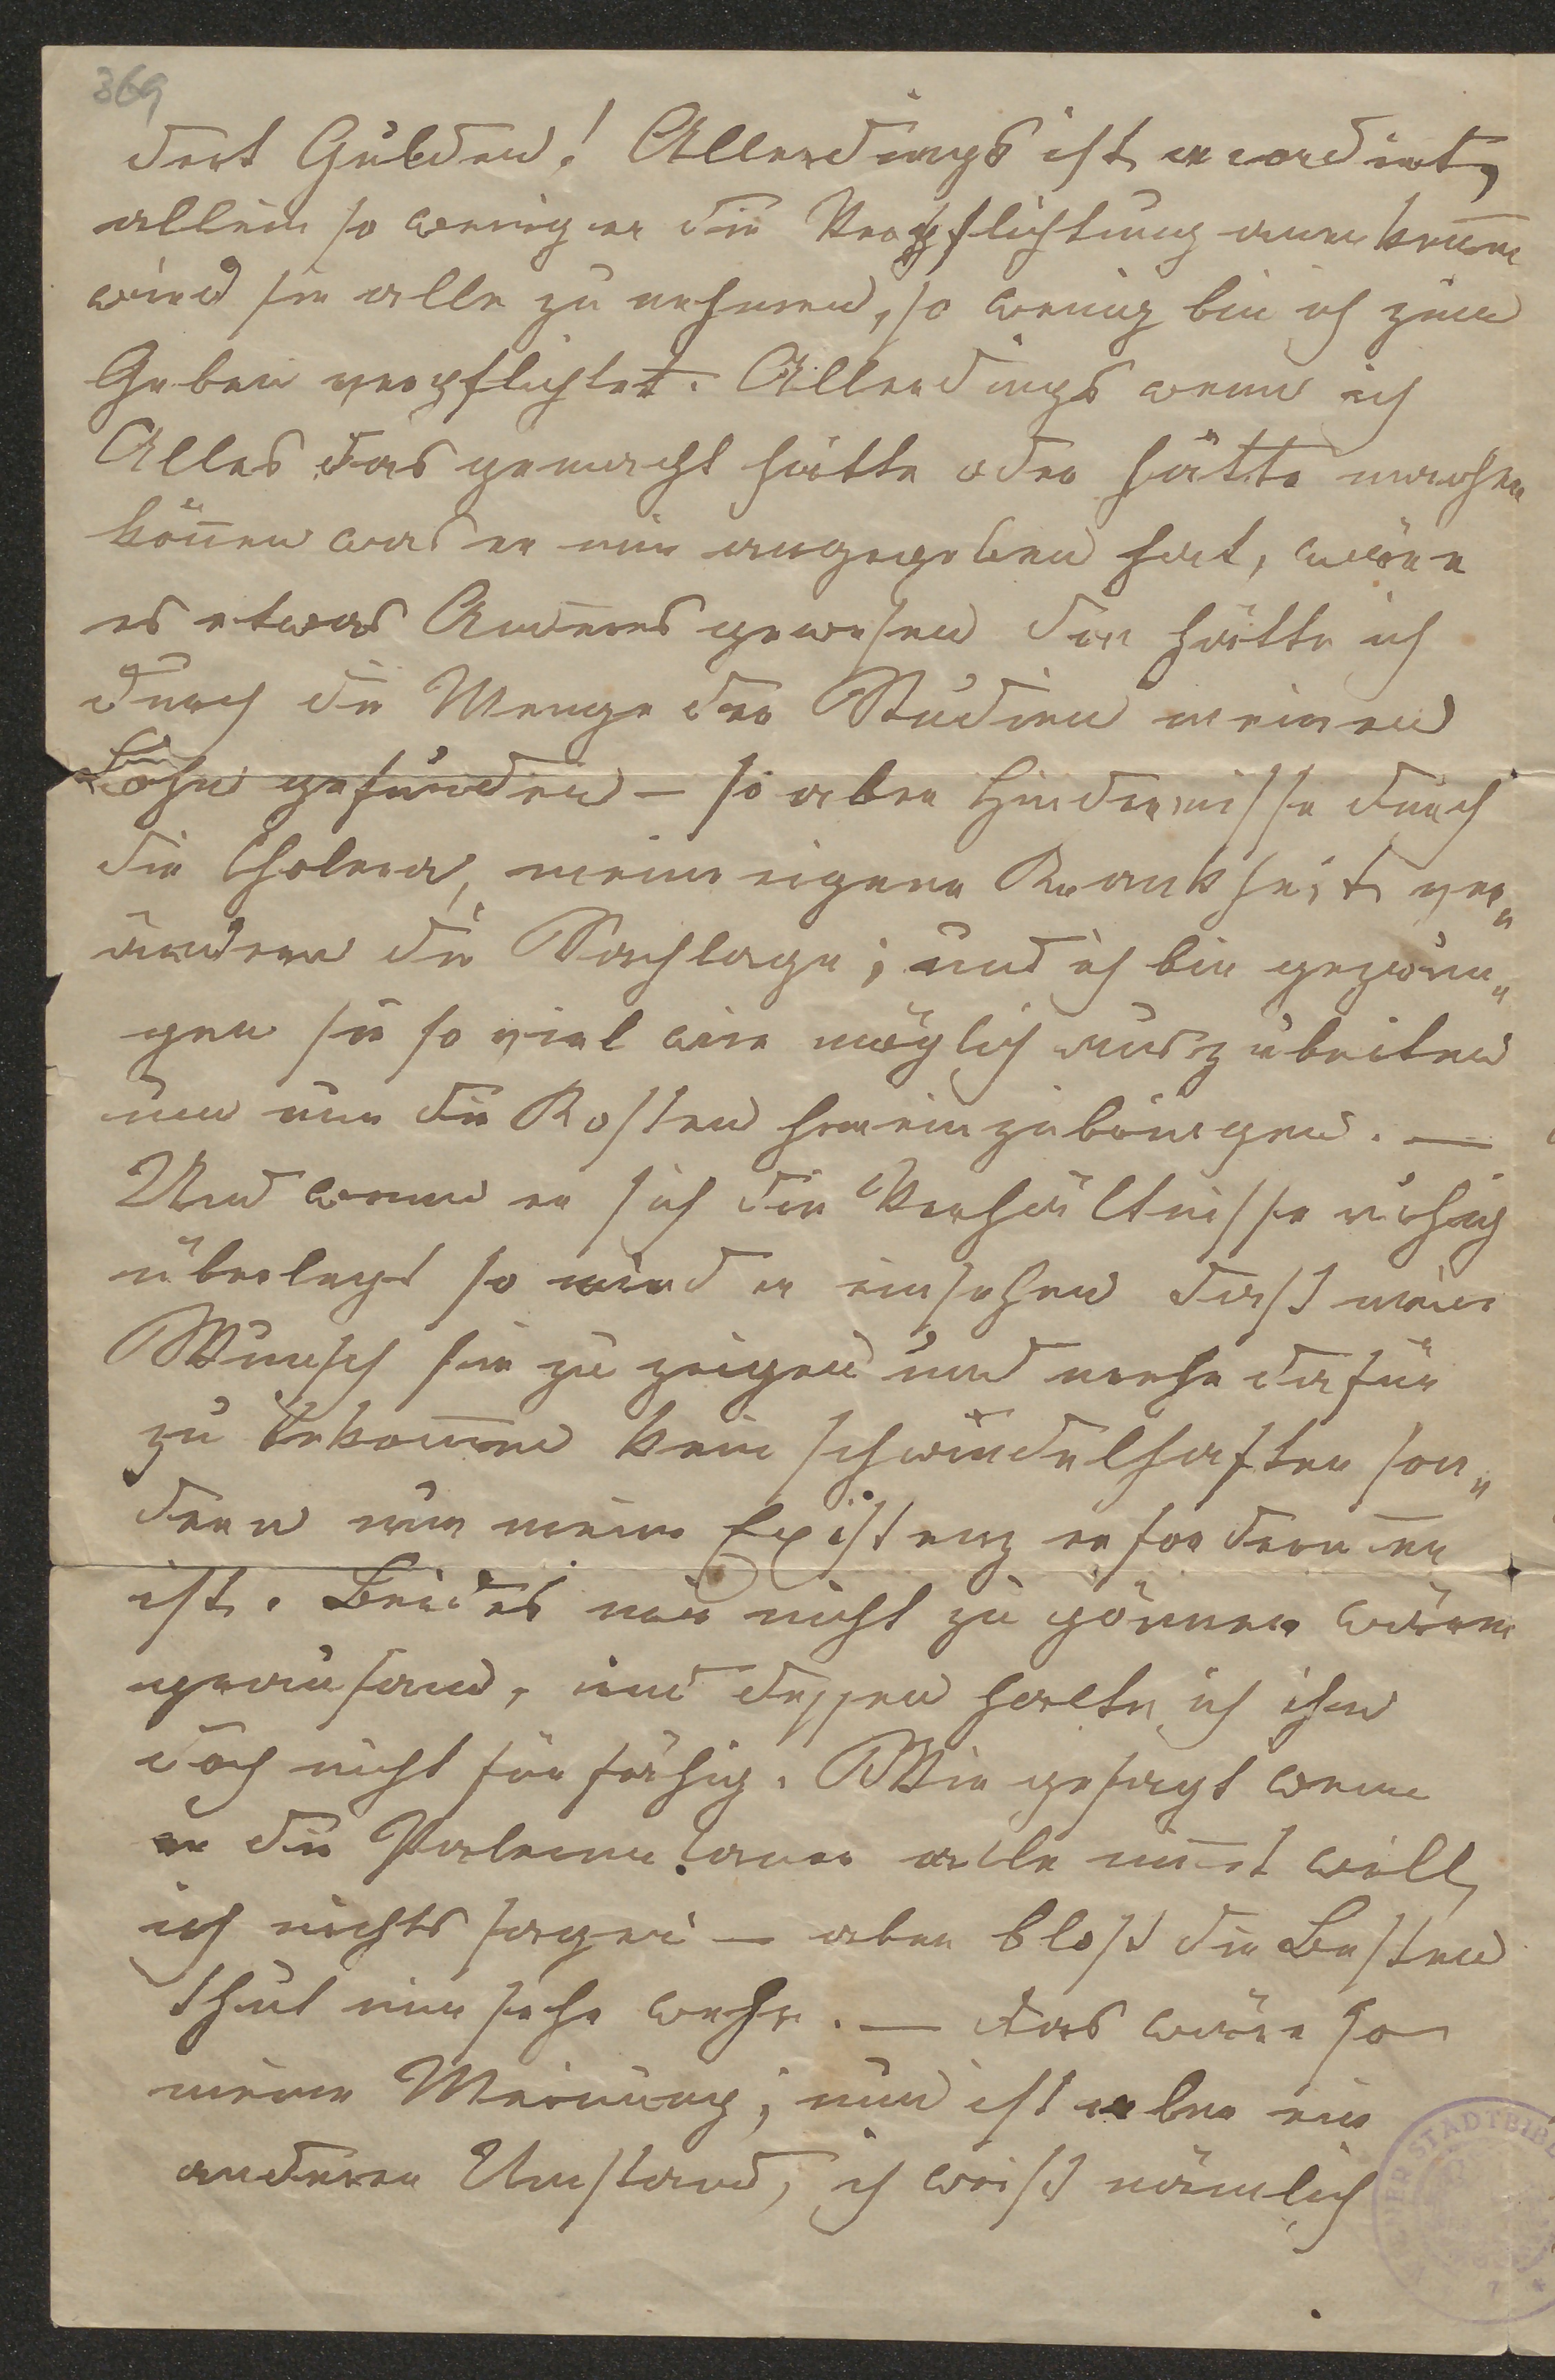 369
dert Gulden! Allerdings ist accordirt,
allein so wenig er die Verpflichtung anerkeñen
wird sie alle zu nehmen, so wenig bin ich zum
Geben verpflichtet. Allerdings wenn ich
Alles das gemacht hätte oder hätte machen
köñen was er mir angegeben hat, wäre
es etwas Anderes gewesen da hätte ich
durch die Menge der Studien meinen
Lohn gefunden – so aber Hindernisse durch
die Cholera, meine eigene Krankheit ver„
ändern die Sachlage; und ich bin gezwun„
gen sie so viel wie möglich auszubeiten
um nur die Kosten hereinzubringen. —
Und wenn er sich die Verhältnisse ruhig
überlegt so wird er einsehen dass mein
Wunsch sie zu zeigen und mehr dafür
zu bekom̄en kein schwindelhafter son„
dern nur meine Existenz erfordern
ist. Beides mir nicht zu gönnen wäre
grausam, und dessen halte ich ihn
doch nicht für fähig. Wie gesagt wenn
er die Palermitaner alle nim̄t will
ich nichts sagen — aber bloss die Besten
thut mir sehr wehe. — das wäre so
meine Meinung; nun ist aber ein
anderer Umstand, ich weiss nämlich
STADTBIB